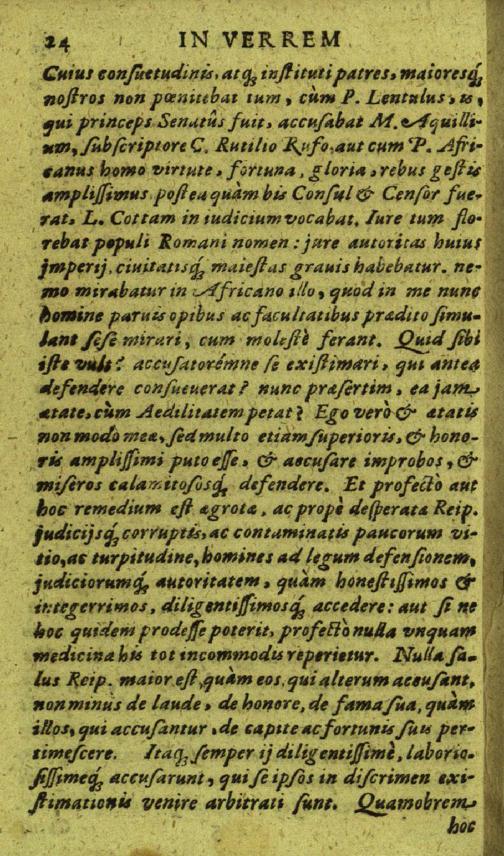 24 IN VERREM
Cuius conſuetudinis, atq́; inſtituti patres, maioresq́;
noſtros non pœnitebat tum, cùm P. Lentulus, is,
qui princeps Senatûs fuit, accuſabat M. Aquilli-
um, ſubſcriptore C. Rutilio Rufo, aut cum P. Afri-
canus homo virtute, fortuna, gloria, rebus geſtis
ampliſſimus, poſtea quàm bis Conſul & Cenſor fue-
rat, L. Cottam in iudicium vocabat. Iure tum flo-
rebat populi Romani nomen: jure autoritas huius
jmperij, ciuitatisq́; maieſtas grauis habebatur. ne-
mo mirabatur in Africano illo, quòd in me nunc
homine paruis opibus ac facultatibus prædito ſimu-
lant ſeſe mirari, cum moleſtè ferant. Quid ſibi
iſte vult? accuſatorémne ſe exiſtimari, qui antea
defendere conſueuerat? nunc præſertim, ea jam
ætate, cùm Aedilitatem petat? Ego verò & ætatis
non modo meæ, ſed multo etiàm ſuperioris, & hono-
ris ampliſſimi puto eſſe, & accuſare improbos, &
miſeros calamitoſosq́; defendere. Et profectò aut
hoc remedium eſt ægrotæ, ac propè deſperatæ Reip.
judicijsq́; corruptis, ac contaminatis paucorum vi-
tio, ac turpitudine, homines ad legum defenſionem,
judiciorumq́; autoritatem, quàm honeſtiſſimos &
integerrimos, diligentiſſimosq́; accedere: aut ſi ne
hoc quidem prodeſſe poterit, profectò nulla vnquam
medicina his tot incommodis reperietur. Nulla ſa-
lus Reip. maior eſt, quàm eos, qui alterum accuſant,
non minus de laude, de honore, de fama ſua, quàm
illos, qui accuſantur, de capite ac fortunis ſuis per-
timeſcere. Itaq́; ſemper ij diligentiſſimè, laborio-
ſiſſimeq́; accuſarunt, qui ſe ipſos in diſcrimen exi-
ſtimationis venire arbitrati ſunt. Quamobrem
hoc